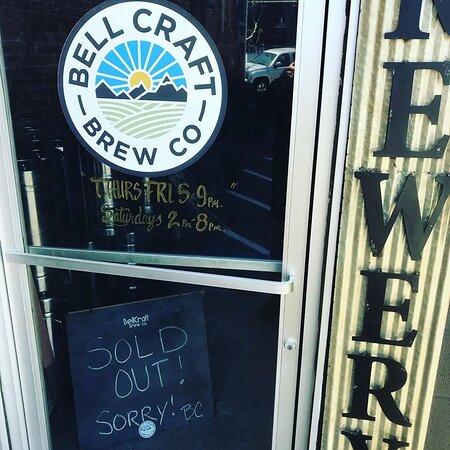 BELL CRAFT
BREW CO
THURS FRI 5-9PM.
Saturdays 2PM-8PM.
BellCraft
BREW CO
SOLD
OUT!
SORRY! BC
REWERY